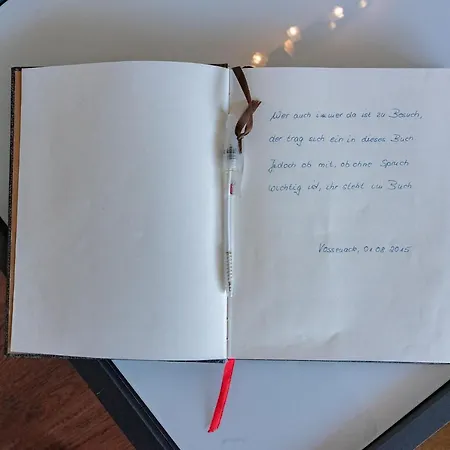 Wer auch immer da ist zu Besuch,
der trag sich ein in dieses Buch
Jedoch ob mit, ob ohne Spruch
wichtig ist, ihr steht im Buch
01.08.2015